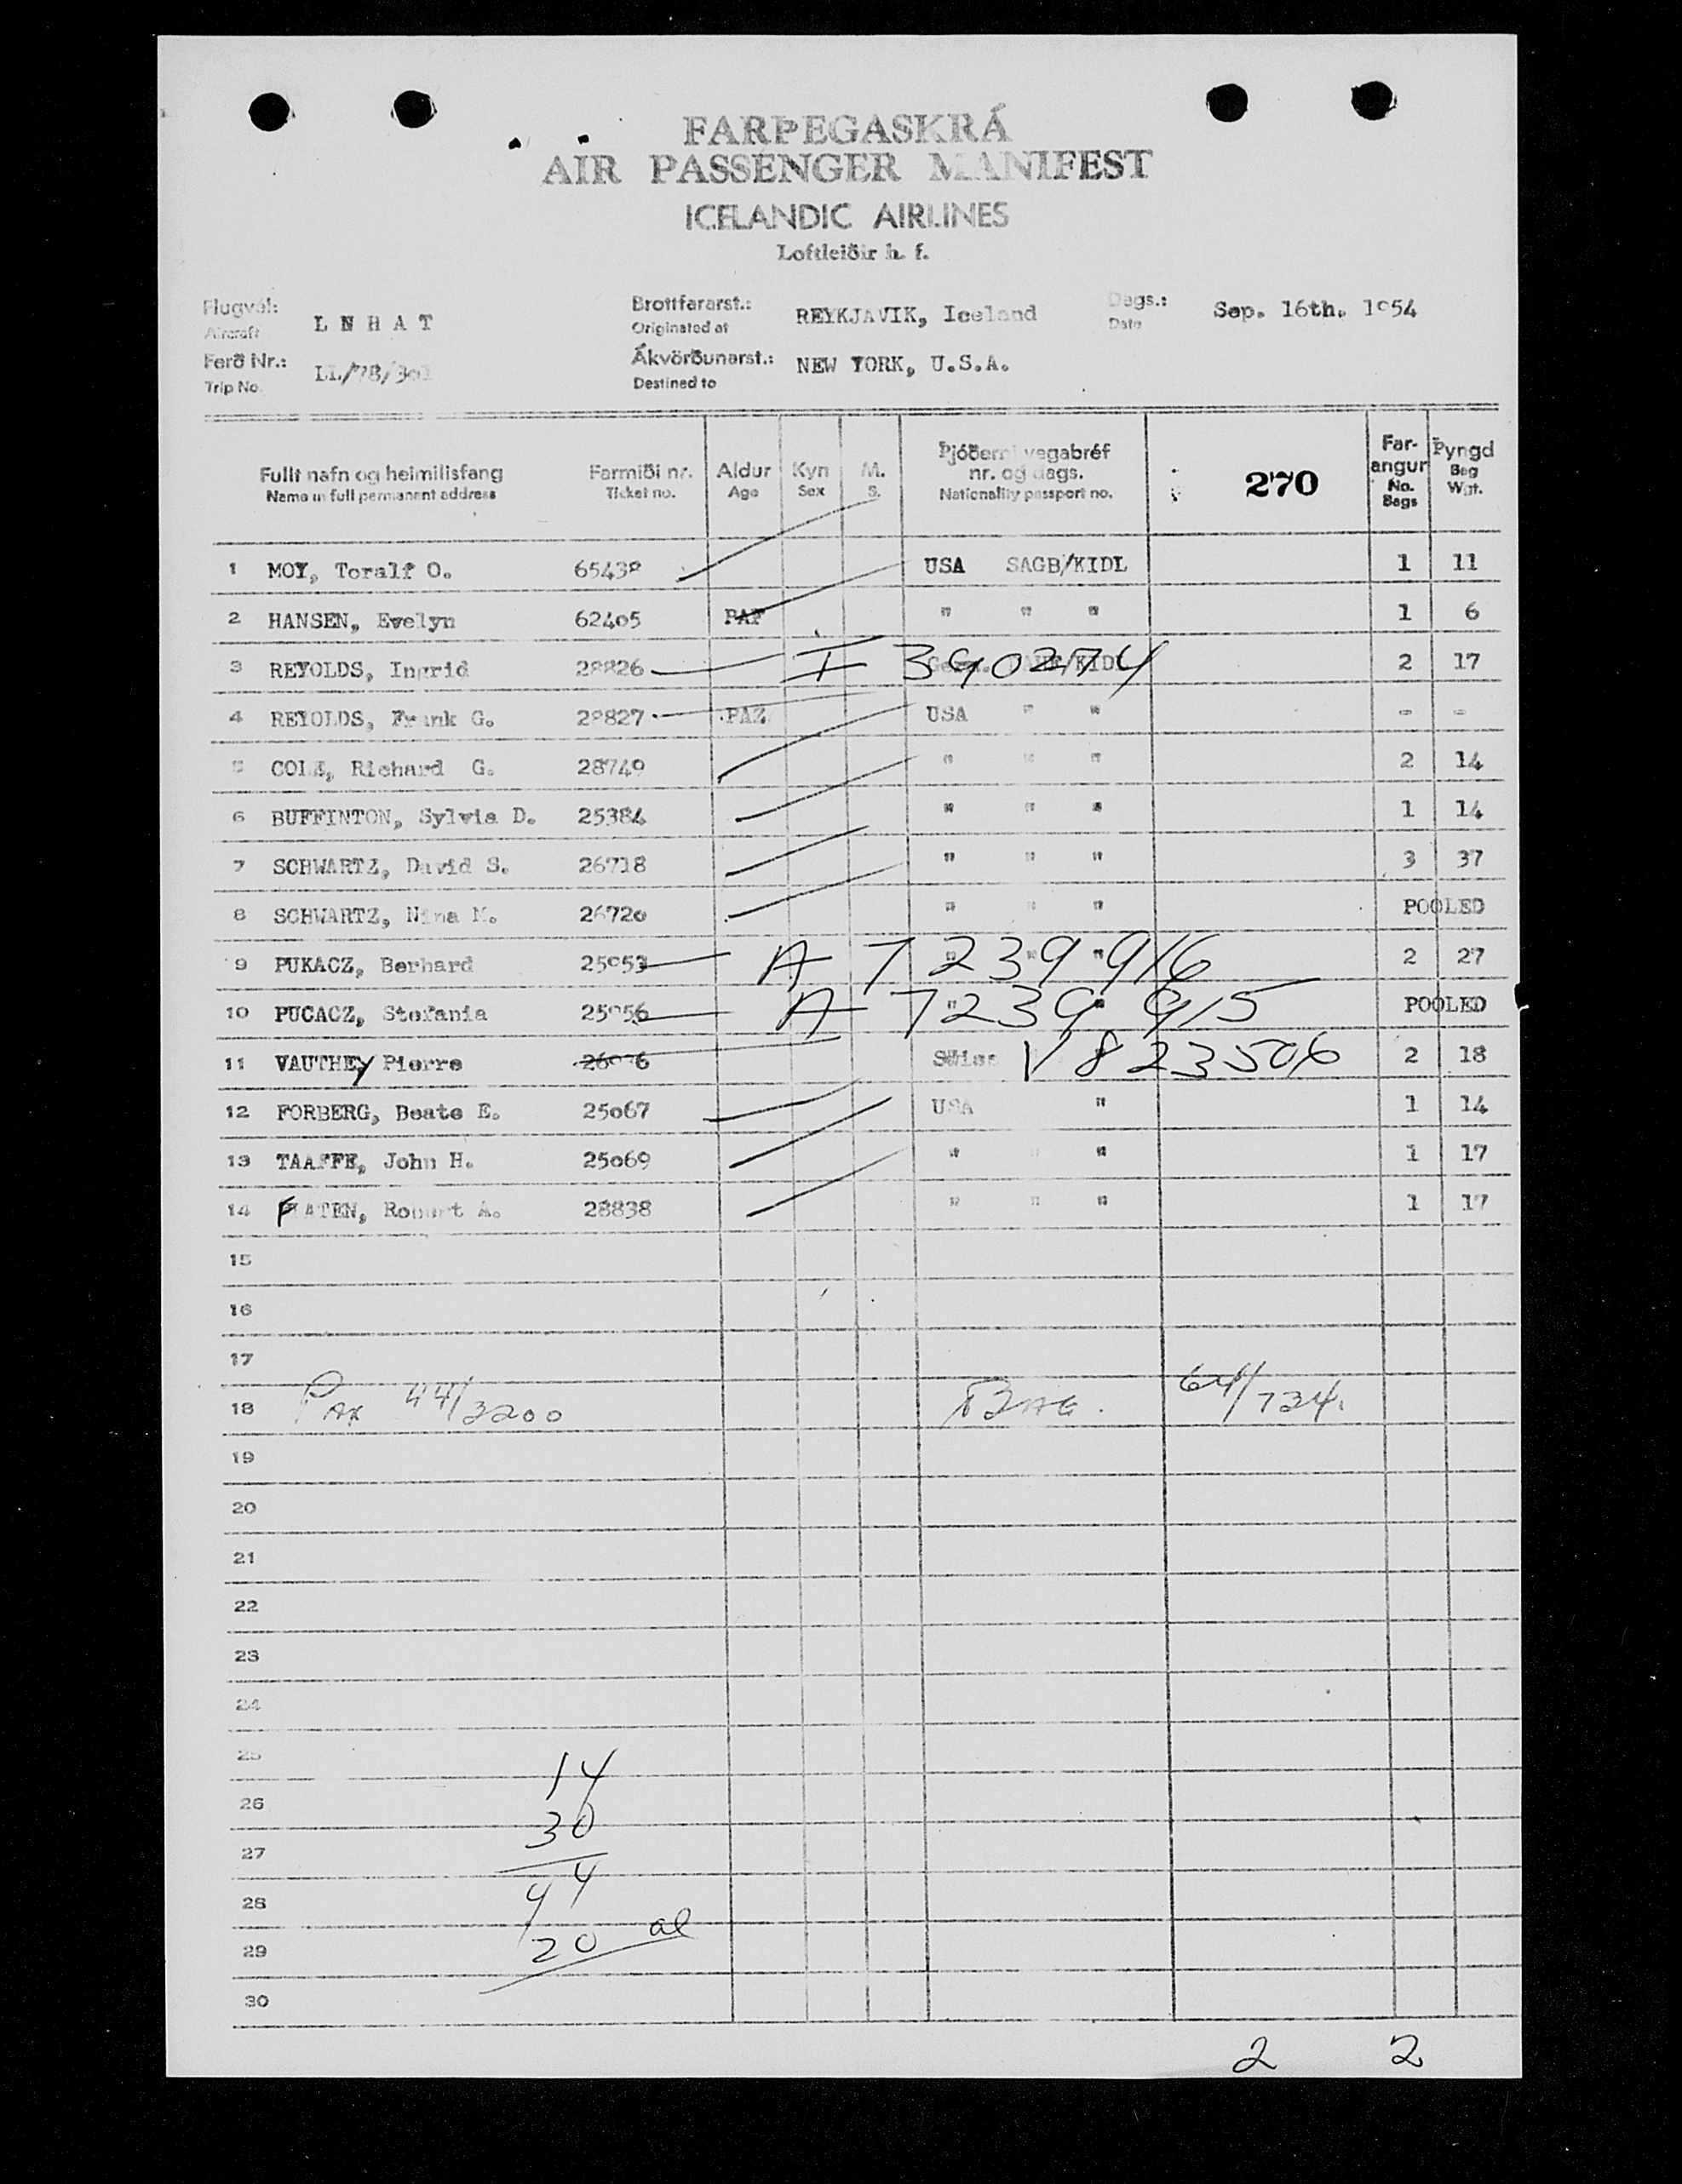 FARÞEGASKRÁ
AIR PASSENGER MANIFEST
ICELANDIC AIRLINES
Loftleiðir h. f.
Flugvél: L N H A T Brottfararst.: REYKJAVIK, Iceland Dags.: Sep. 16th. 1954
Aircraft Originated at Date
Ferð Nr.: LL/78/ Ákvörðunarst.: NEW YORK, U.S.A.
Trip No. Destined to
Fullt nafn og heimilisfang Farmiði nr. Aldur Kyn M. Þjóðerni vegabréf nr. og dags. 270 Far-angur Þyngd
Name in full permanent address Ticket no. Age Sex S. Nationality passport no. No. Bags Bag Wgt.
1 MOY, Toralf O. 65438 USA SAGB/KIDL 1 11
2 HANSEN, Evelyn 62405 PAF " " " 1 6
3 REYOLDS, Ingrid 28826 I 390274 /KIDL 2 17
4 REYOLDS, Frank G. 28827 PAZ USA " " - -
5 COLE, Richard G. 28749 " " " 2 14
6 BUFFINTON, Sylvia D. 25384 " " " 1 14
7 SCHWARTZ, David S. 26718 " " " 3 37
8 SCHWARTZ, Nina M. 26720 " " " POOLED
9 PUKACZ, Berhard 25953 A 7239916 " " " 2 27
10 PUCACZ, Stefania 25956 A 7239915 " " POOLED
11 VAUTHEy Pierre Swiss V 823506 2 18
12 FORBERG, Beate E. 25067 USA " 1 14
13 TAAFFE, John H. 25069 " " " 1 17
14 FLATEN, Robert A. 28838 " " " 1 17
15
16
17
18 Pax 44/3200 BAG. 64/734.
19
20
21
22
23
24
25
14
26
30
27
44
28
20 al
29
30
2 2